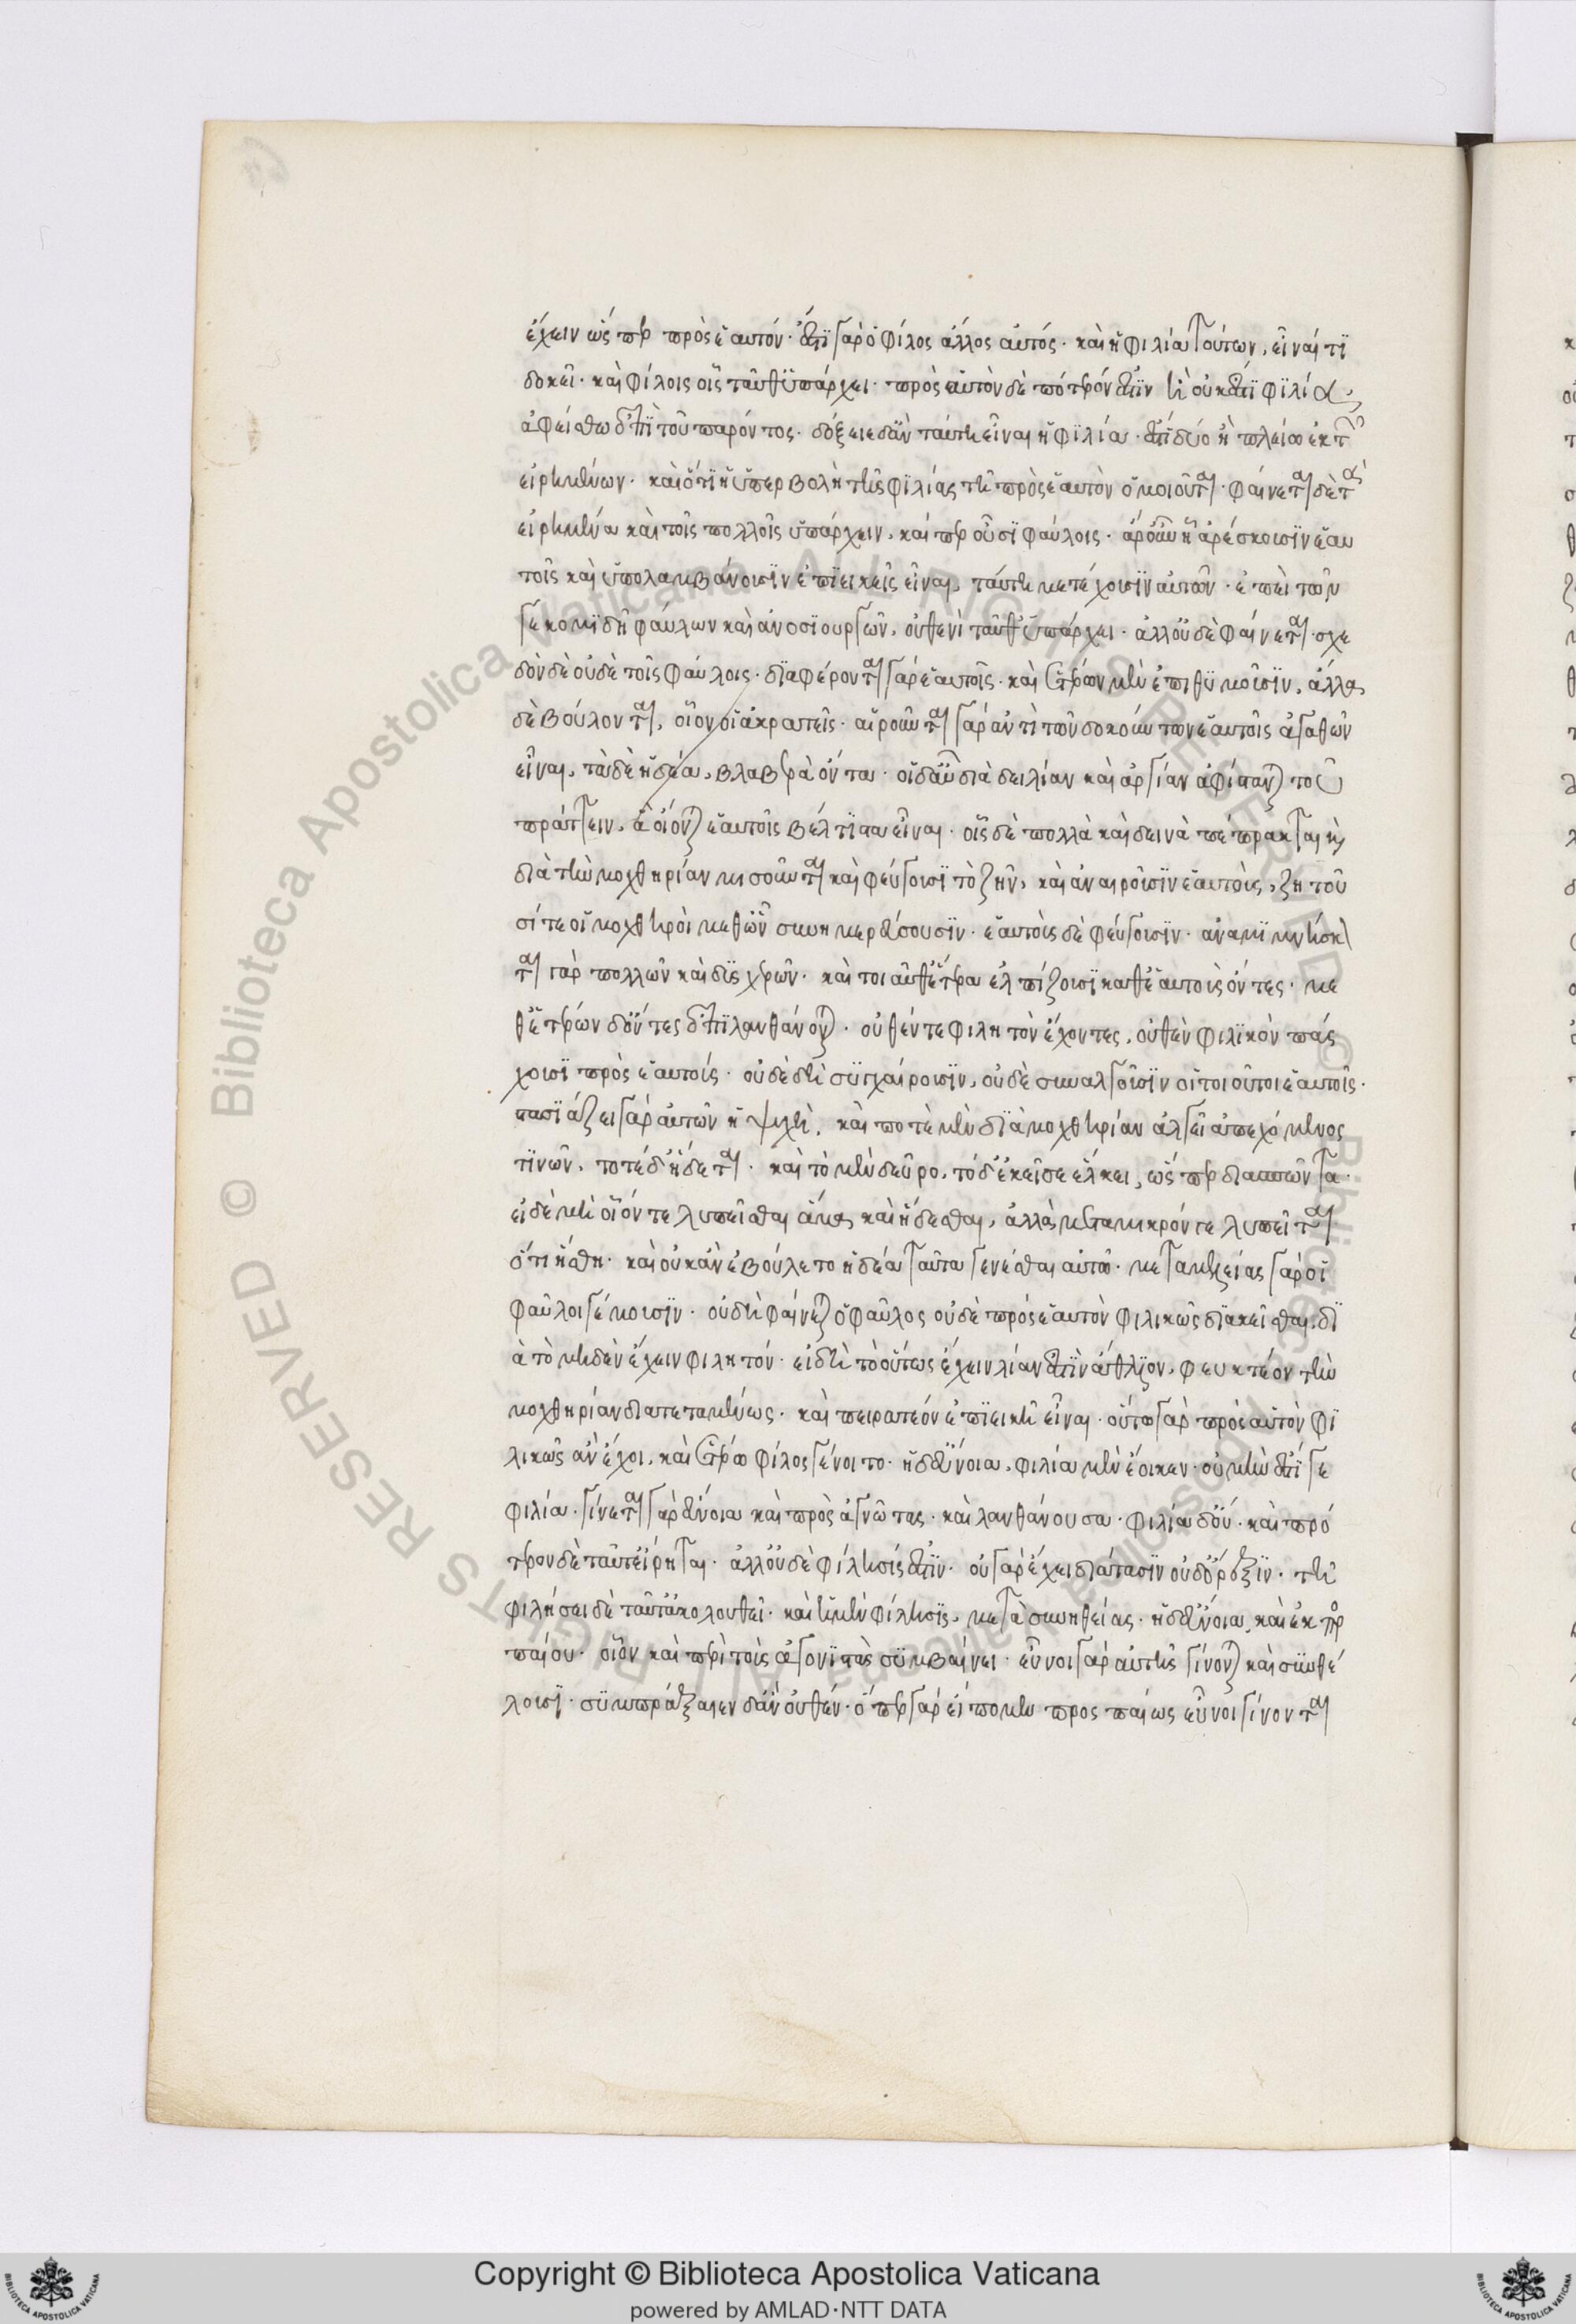 ἔχειν ὥσπερ πρὸς ἑαυτόν· ἔστι γὰρ ὁ φίλος ἄλλος αὐτός· καὶ ἡ φιλία τούτων, εἶναί τι
δοκεῖ· καὶ φίλοις οἷς ταῦθ ὑπάρχει· πρὸς αὑτὸν δὲ πότερόν ἐστιν ἢ οὐκ ἔστι φιλία,
ἀφείσθω ἐπὶ τοῦ παρόντος· δόξειε δ ἂν ταύτῃ εἶναι ἡ φιλία· ἔστι δύο ἢ πλείω ἐκ τῶν
εἰρημένων· καὶ ὅτι ἡ ὑπερβολὴ τῆς φιλίας τῇ πρὸς ἑαυτὸν ὁμοιοῦται· φαίνεται δὲ τὰ
εἰρημένα καὶ τοῖς πολλοῖς ὑπάρχειν, καίπερ οὖσι φαύλοις· ἆρ οὖν ᾗ ἀρέσκουσιν ἑαυ
τοῖς καὶ ὑπολαμβάνουσιν ἐπιεικεῖς εἶναι, ταύτῃ μετέχουσιν αὐτῶν· ἐπεὶ τῶν
γε κομιδῇ φαύλων καὶ ἀνοσιουργῶν, οὐθενὶ ταῦθ ὑπάρχει· ἀλλ οὐδὲ φαίνεται· σχε
δὸν δὲ οὐδὲ τοῖς φαύλοις· διαφέρονται γὰρ ἑαυτοῖς· καὶ ἑτέρων μὲν ἐπιθυμοῦσιν, ἄλλα
δὲ βούλονται, οἷον οἱ ἀκρατεῖς· αἱροῦνται γὰρ ἀντὶ τῶν δοκούντων ἑαυτοῖς ἀγαθῶν
εἶναι, τὰ δὲ ἡδέα, βλαβερὰ ὄντα· οἱ δ αὖ διὰ δειλίαν καὶ ἀργίαν ἀφίστανται τοῦ
πράττειν, ἃ οἴονται ἑαυτοῖς βέλτιστα εἶναι· οἷς δὲ πολλὰ καὶ δεινὰ πέπρακται καὶ
διὰ τὴν μοχθηρίαν μισοῦνται καὶ φεύγουσι τὸ ζῆν, καὶ ἀναιροῦσιν ἑαυτούς, ζητοῦ
σί τε οἱ μοχθηροὶ μεθ ὧν συνημερεύσουσιν· ἑαυτοὺς δὲ φεύγουσιν· ἀναμιμνήσκον
ται γὰρ πολλῶν καὶ δυσχερῶν· καὶ τοιαῦθ ἕτερα ἐλπίζουσι καθ ἑαυτοὺς ὄντες· με
θ ἑτέρων δ ὄντες ἐπιλανθάνονται· οὐθέν τε φιλητὸν ἔχοντες, οὐθὲν φιλικὸν πάσ
χουσι πρὸς ἑαυτούς· οὐδὲ δὴ συγχαίρουσιν, οὐδὲ συναλγοῦσιν οἱ τοιοῦτοι ἑαυτοῖς·
στασιάζει γὰρ αὐτῶν ἡ ψυχή, καὶ ποτὲ μὲν διὰ μοχθηρίαν ἀλγεῖ ἀπεχόμενος
τινῶν, ποτὲ δ ἥδεται· καὶ τὸ μὲν δεῦρο, τὸ δ ἐκεῖσε ἕλκει, ὥσπερ διασπῶντα·
εἰ δὲ μὴ οἷόν τε λυπεῖσθαι ἅμα καὶ ἥδεσθαι, ἀλλὰ μετὰ μικρόν γε λυπεῖται
ὅτι ἥσθη· καὶ οὐκ ἂν ἐβούλετο ἡδέα ταῦτα γενέσθαι αὐτῷ· μεταμελείας γὰρ οἱ
φαῦλοι γέμουσιν· οὐ δὴ φαίνεται ὁ φαῦλος οὐδὲ πρὸς ἑαυτὸν φιλικῶς διακεῖσθαι, δι
ὰ τὸ μηδὲν ἔχειν φιλητόν· εἰ δὴ τὸ οὕτως ἔχειν λίαν ἐστὶν ἄθλιον, φευκτέον τὴν
μοχθηρίαν διατεταμένως· καὶ πειρατέον ἐπιεικῆ εἶναι· οὕτω γὰρ πρὸς αὑτὸν φι
λικῶς ἂν ἔχοι, καὶ ἑτέρῳ φίλος γένοιτο· ἡ δ εὔνοια, φιλία μὲν ἔοικεν· οὐ μὴν ἔστι γε
φιλία· γίνεται γὰρ εὔνοια καὶ πρὸς ἀγνῶτας· καὶ λανθάνουσα· φιλία δ οὔ· καὶ πρό
τερον δὲ ταῦτ εἴρηται· ἀλλ οὐδὲ φίλησίς ἐστιν· οὐ γὰρ ἔχει διάτασιν οὐδ ὄρεξιν· τῇ
φιλήσει δὲ ταῦτ ἀκολουθεῖ· καὶ ἡ μὲν φίλησις, μετὰ συνηθείας· ἡ δ εὔνοια, καὶ ἐκ προσ
παίου· οἷον καὶ περὶ τοὺς ἀγονιστὰς συμβαίνει· εὖνοι γὰρ αὐτῆς γίνονται καὶ συνθέ
λουσι· συμπράξαιεν δ ἂν οὐθέν· ὅπερ γὰρ εἴπομεν προσπαίως εὖνοι γίνονται
Copyright © Biblioteca Apostolica Vaticana
powered by AMLAD·NTT DATA